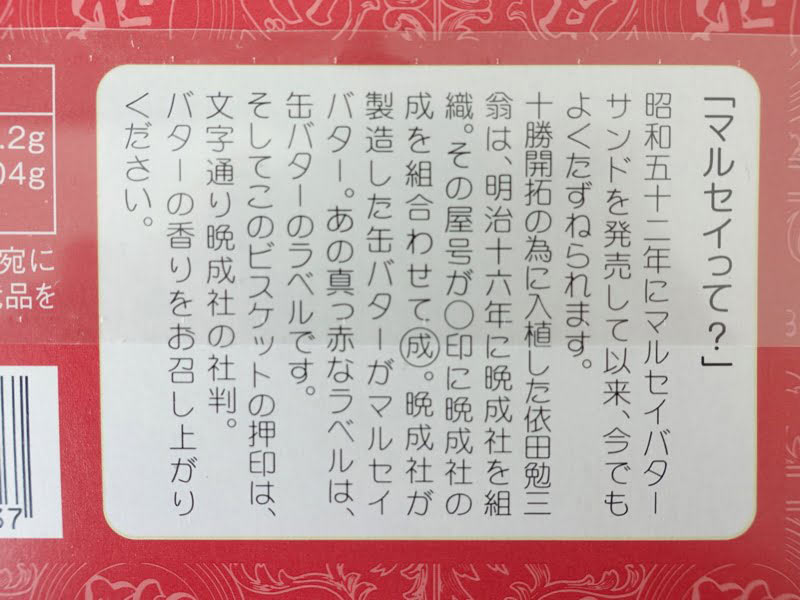 「マルセイって？」
昭和五十二年にマルセイバター
サンドを発売して以来、今でも
よくたずねられます。
十勝開拓の為に入植した依田勉三
翁は、明治十六年に晩成社を組
織。その屋号が〇印に晩成社の
成を組合わせて㊟成。晩成社が
製造した缶バターがマルセイ
バター。あの真っ赤なラベルは、
缶バターのラベルです。
そしてこのビスケットの押印は、
文字通り晩成社の社判。
バターの香りをお召し上がり
ください。
.2g
04g
宛に
品を
37